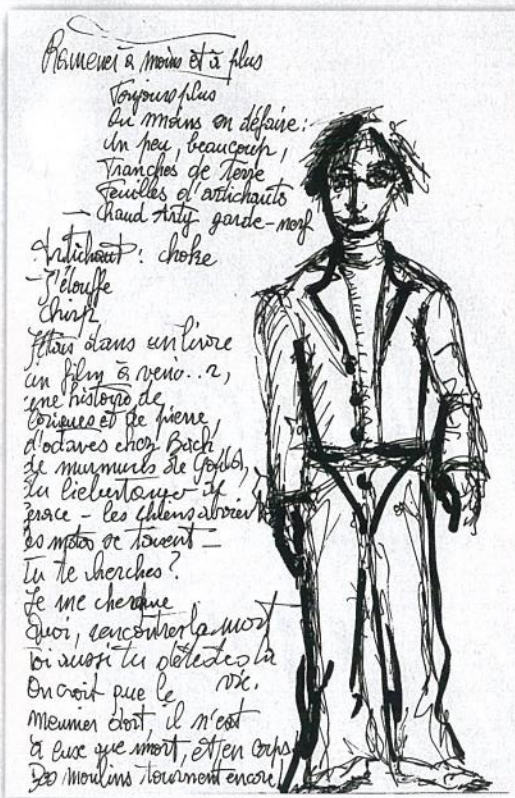 Ramener à moins et à plus
Toujours plus
Ou moins on défaire :
Un peu, beaucoup,
Tranches de terre
Feuilles d'artichauts
— Chaud Arty garde-
Artichaut : choke
— J'étouffe
Chirp
J'étais dans un livre
un film à venir,
une histoire de
et de pierre,
d'octaves chez Bach
de murmures de
du liebertango of
grace – les chiens
les motos se taisent –
Tu te cherches ?
Je me cherche
Quoi, rencontrer la mort
Toi aussi tu détestes la
vie.
On croit que le
meunier dort, il n'est
que mort, et en corps
Des moulins tournent encore